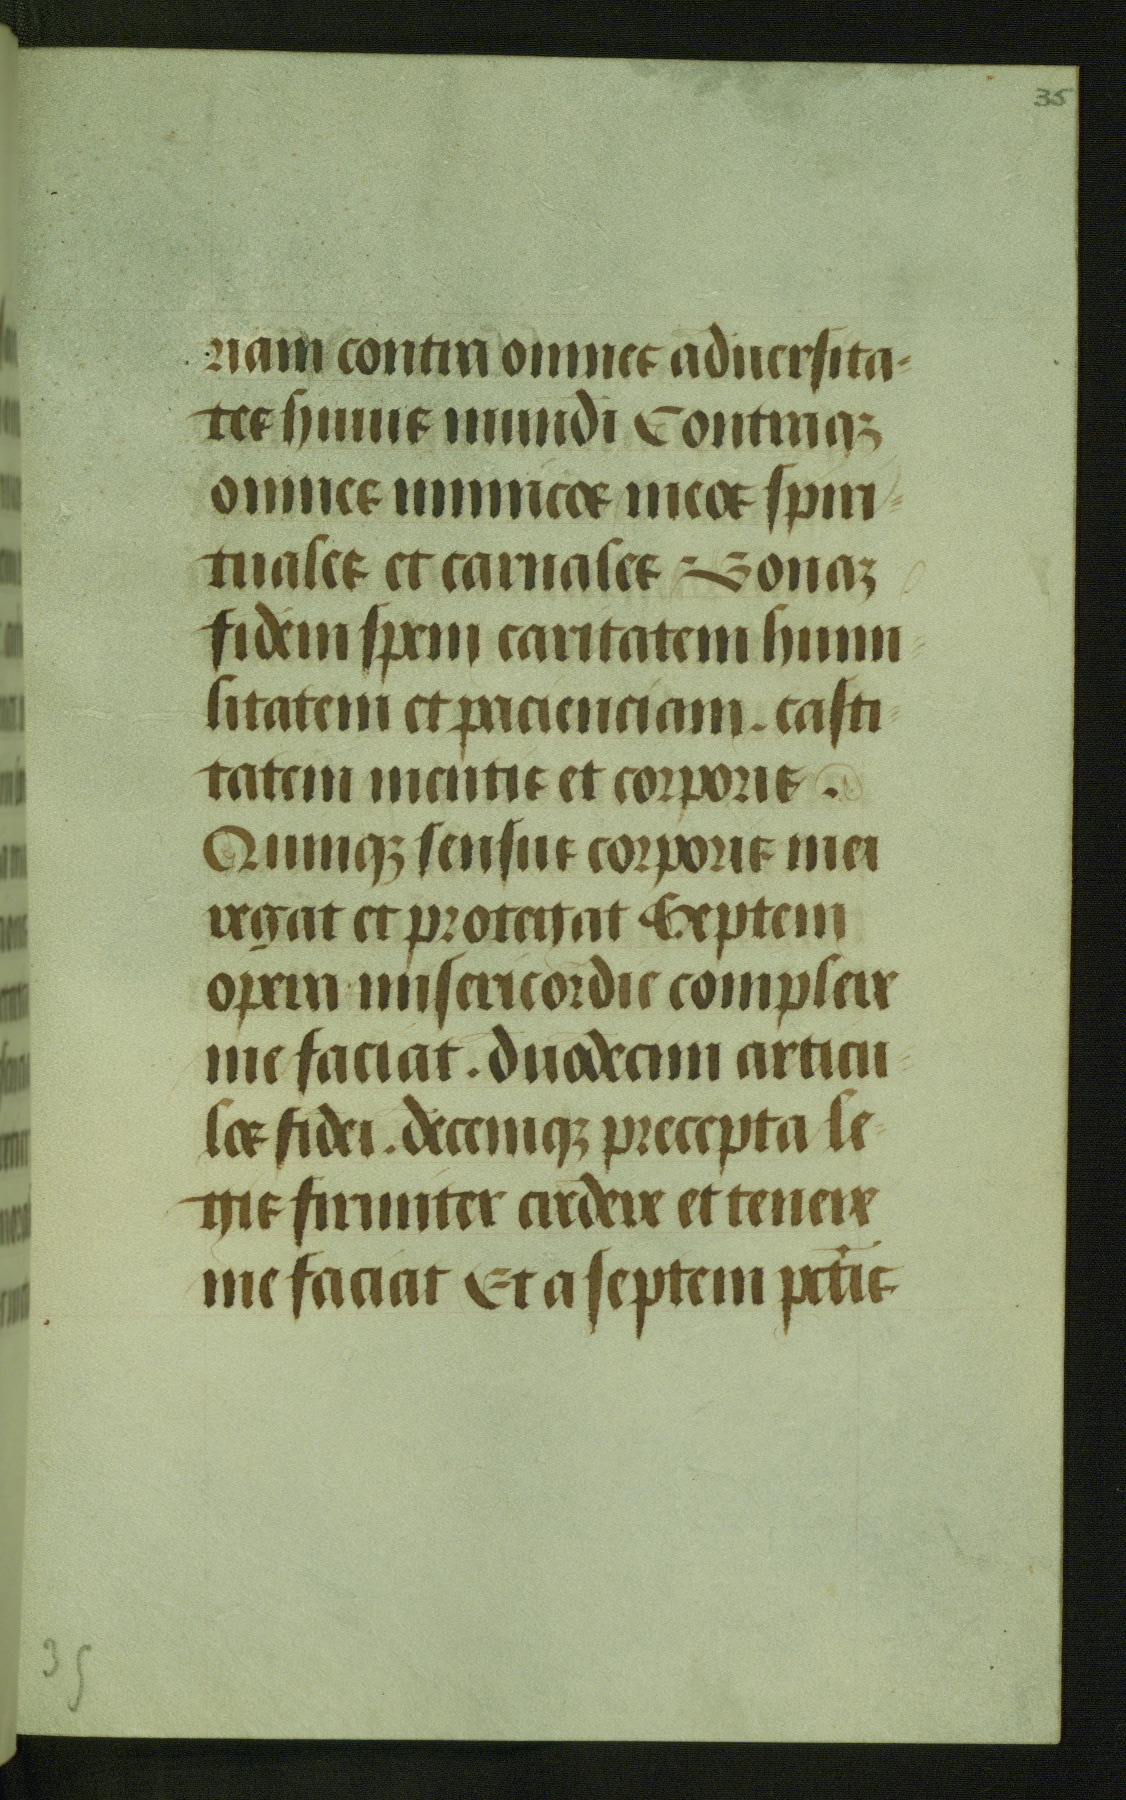 35
riam contra omnes aduersita-
tes huius mundi Contraqꝫ
omnes inimicos meos spiri-
tuales et carnales Donaꝫ
fidem spem caritatem humi-
litatem et pacienciam. casti-
tatem mentis et corporis.
Quinqꝫ sensus corporis mei
regat et protegat Septem
opera misericordie complere
me faciat. duodecim articu-
los fidei. decemqꝫ precepta le-
gis firmiter credere et tenere
me faciat Et a septem pctīs
35